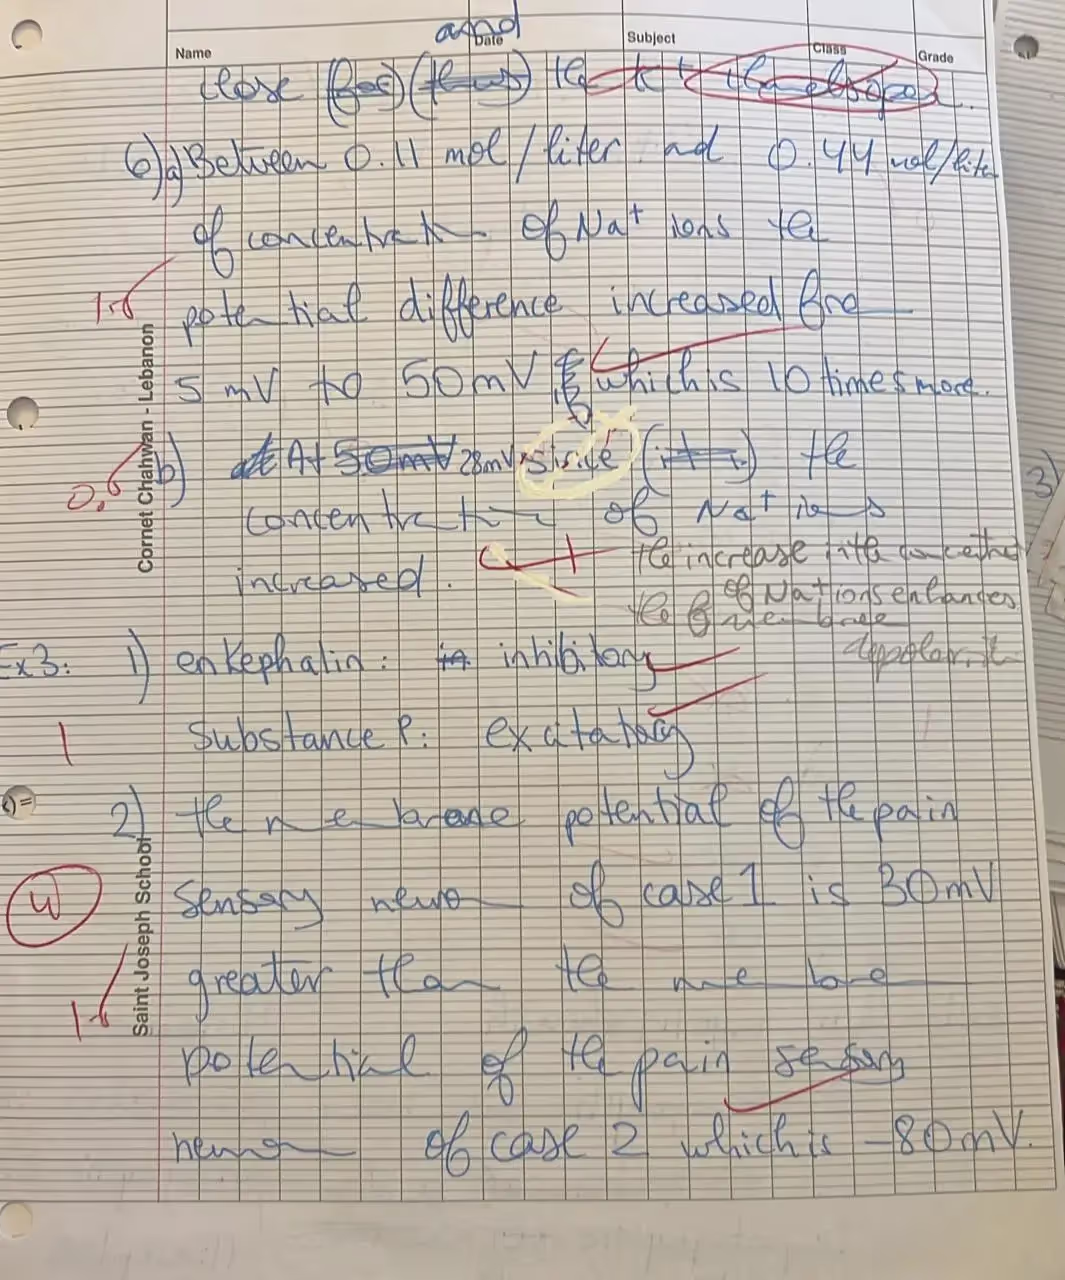 and
Name Date Subject Class Grade
close (for) (thus) the K+ channels
6)a) Between 0.11 mol/liter and 0.44 mol/liter
of concentration of Na+ ions the
1.5
potential difference increased from
5 mV to 50mV which is 10 times more.
0,5
b) At 50mV 28mV since (it is) the
concentration of Na+ ions
increased.
the increase in the concentration
of Na+ ions enhances
the membrane
depolariz
Ex3: 1) enkephalin: inhibitory
1
Substance P: excitatory
2) the membrane potential of the pain
sensory neuron of case 1 is 30mV
greater than the membrane
potential of the pain sensory
neuron of case 2 which is -80mV.
3)
Cornet Chahwan - Lebanon
Saint Joseph School